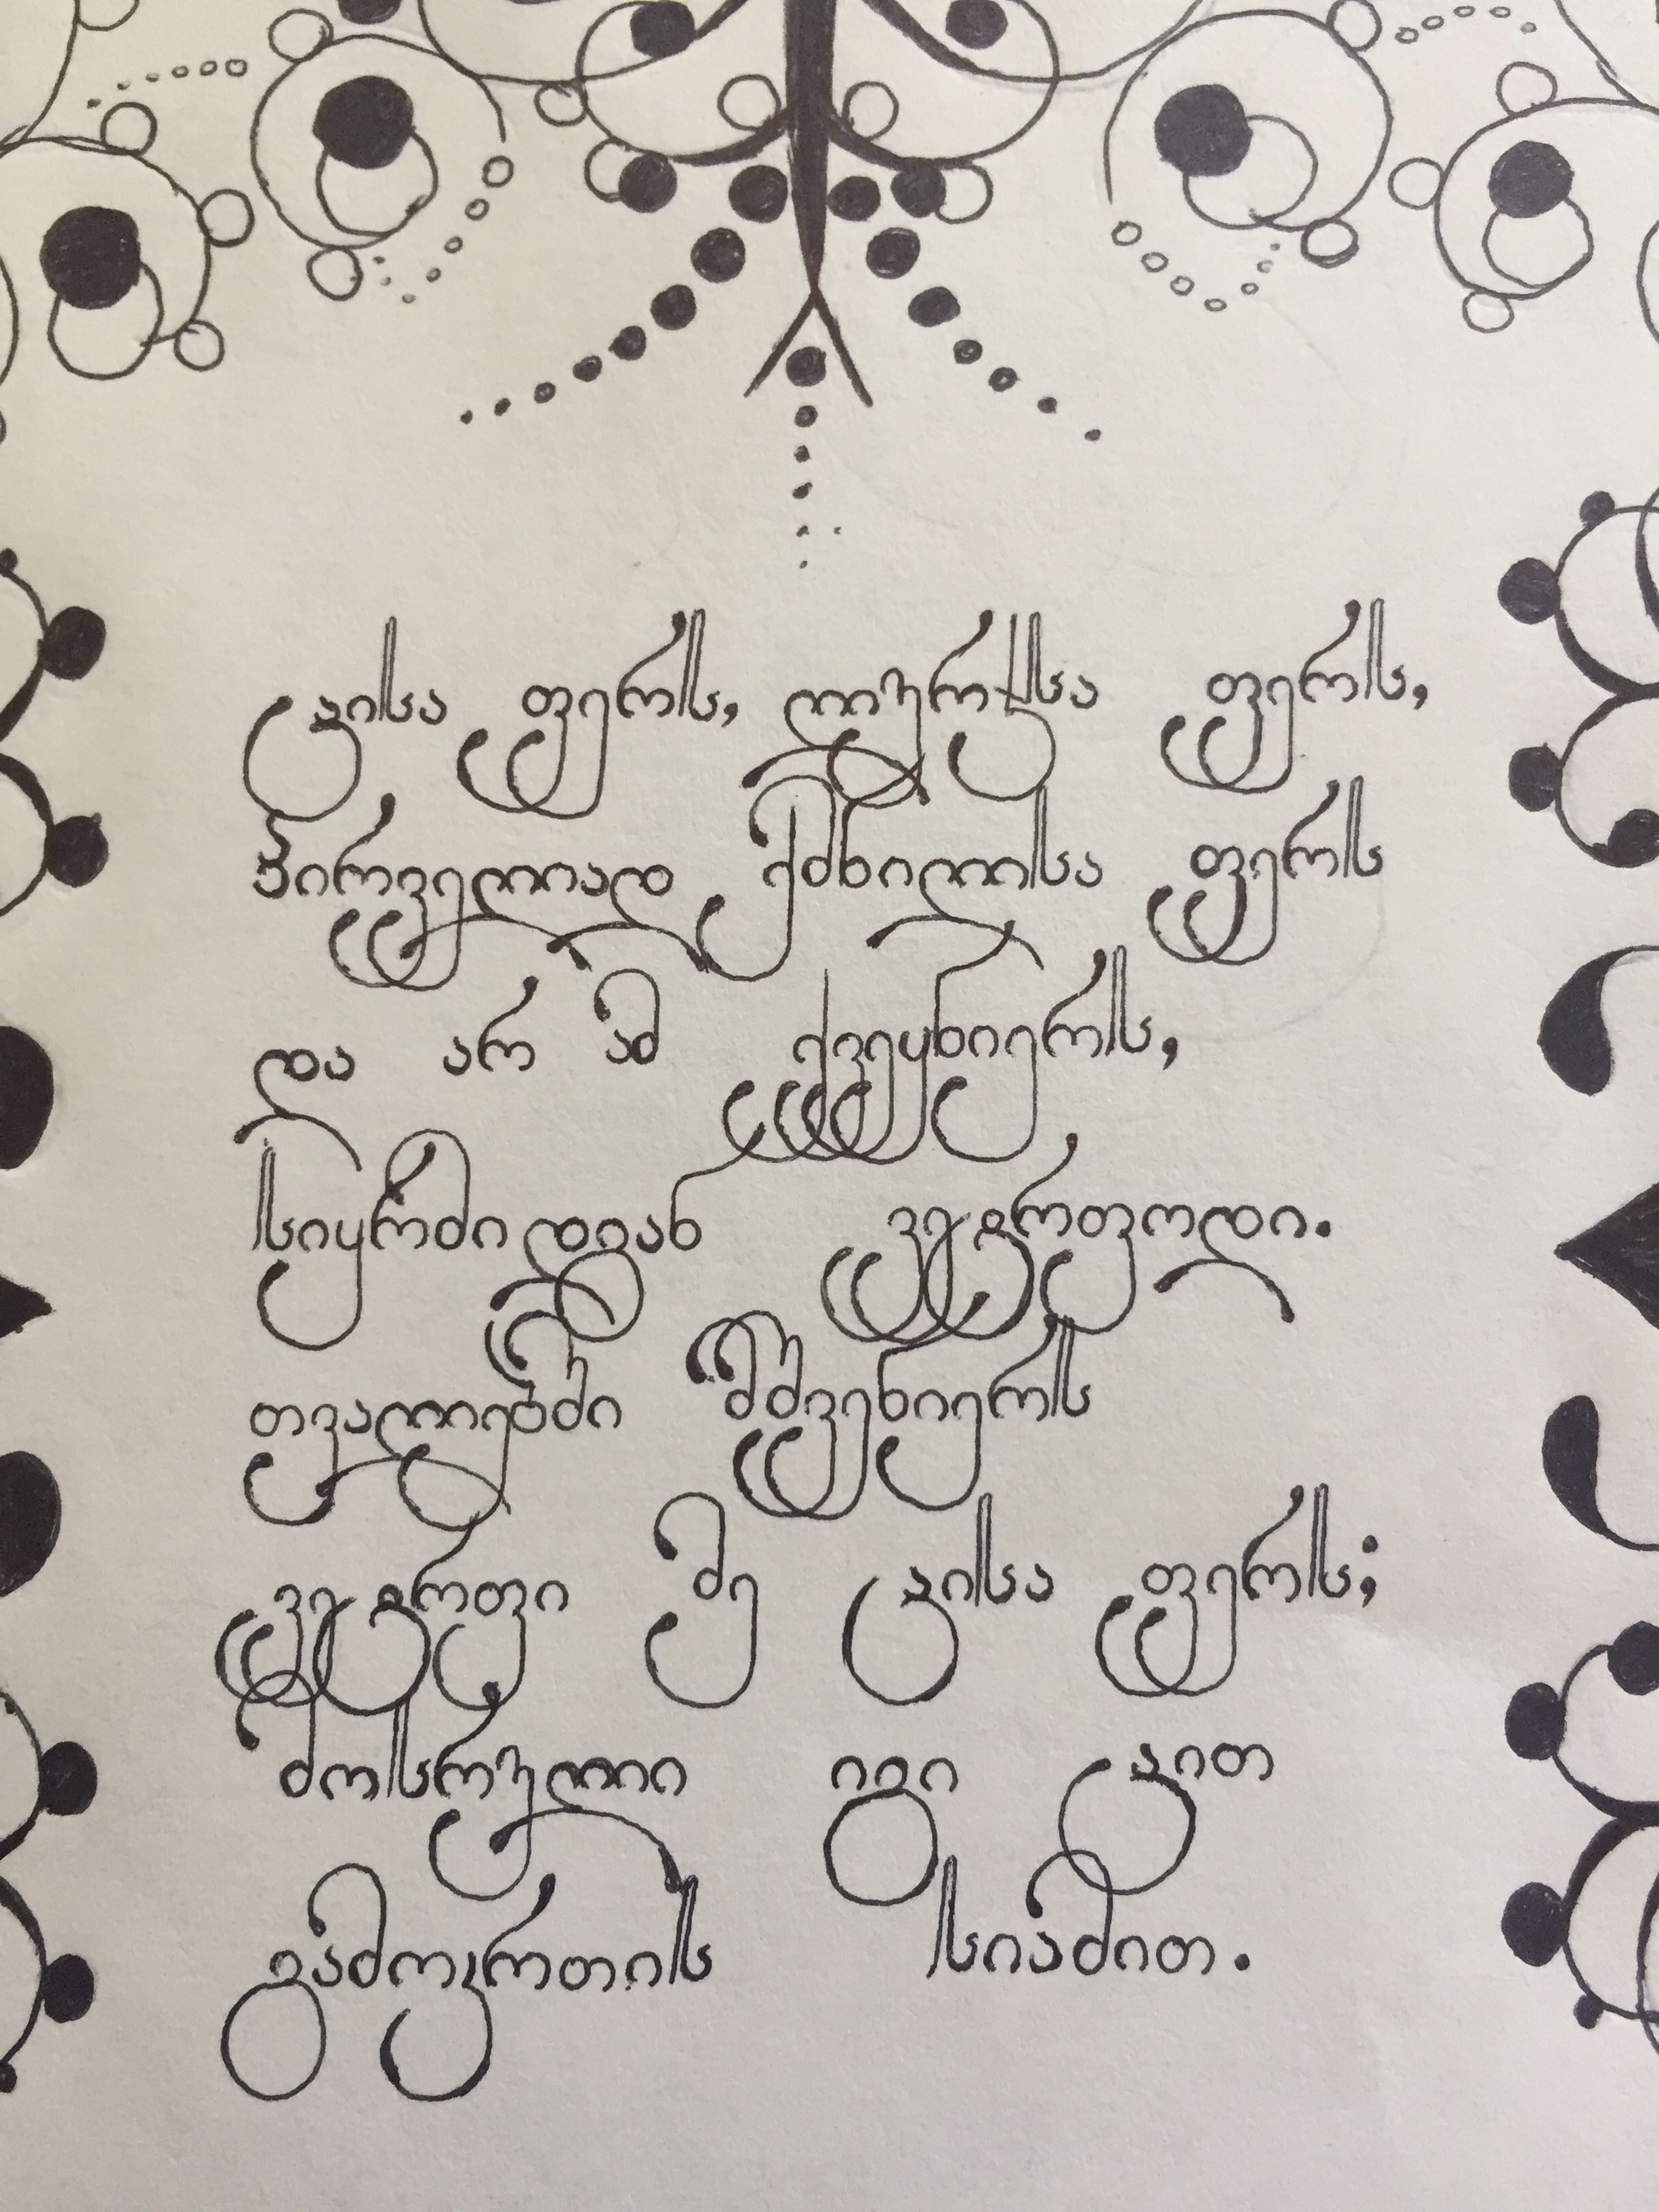 ცისა ფერს, ლურჯსა ფერს,
პირველად ქმნილსა ფერს
და არ ამ ქვეყნიერს,
სიყრმიდგან ვეტრფოდი.
თვალებში მშვენიერს
ვეტრფი მე ცისა ფერს;
მოსრული იგი ცით
გამოკრთის სიამით.